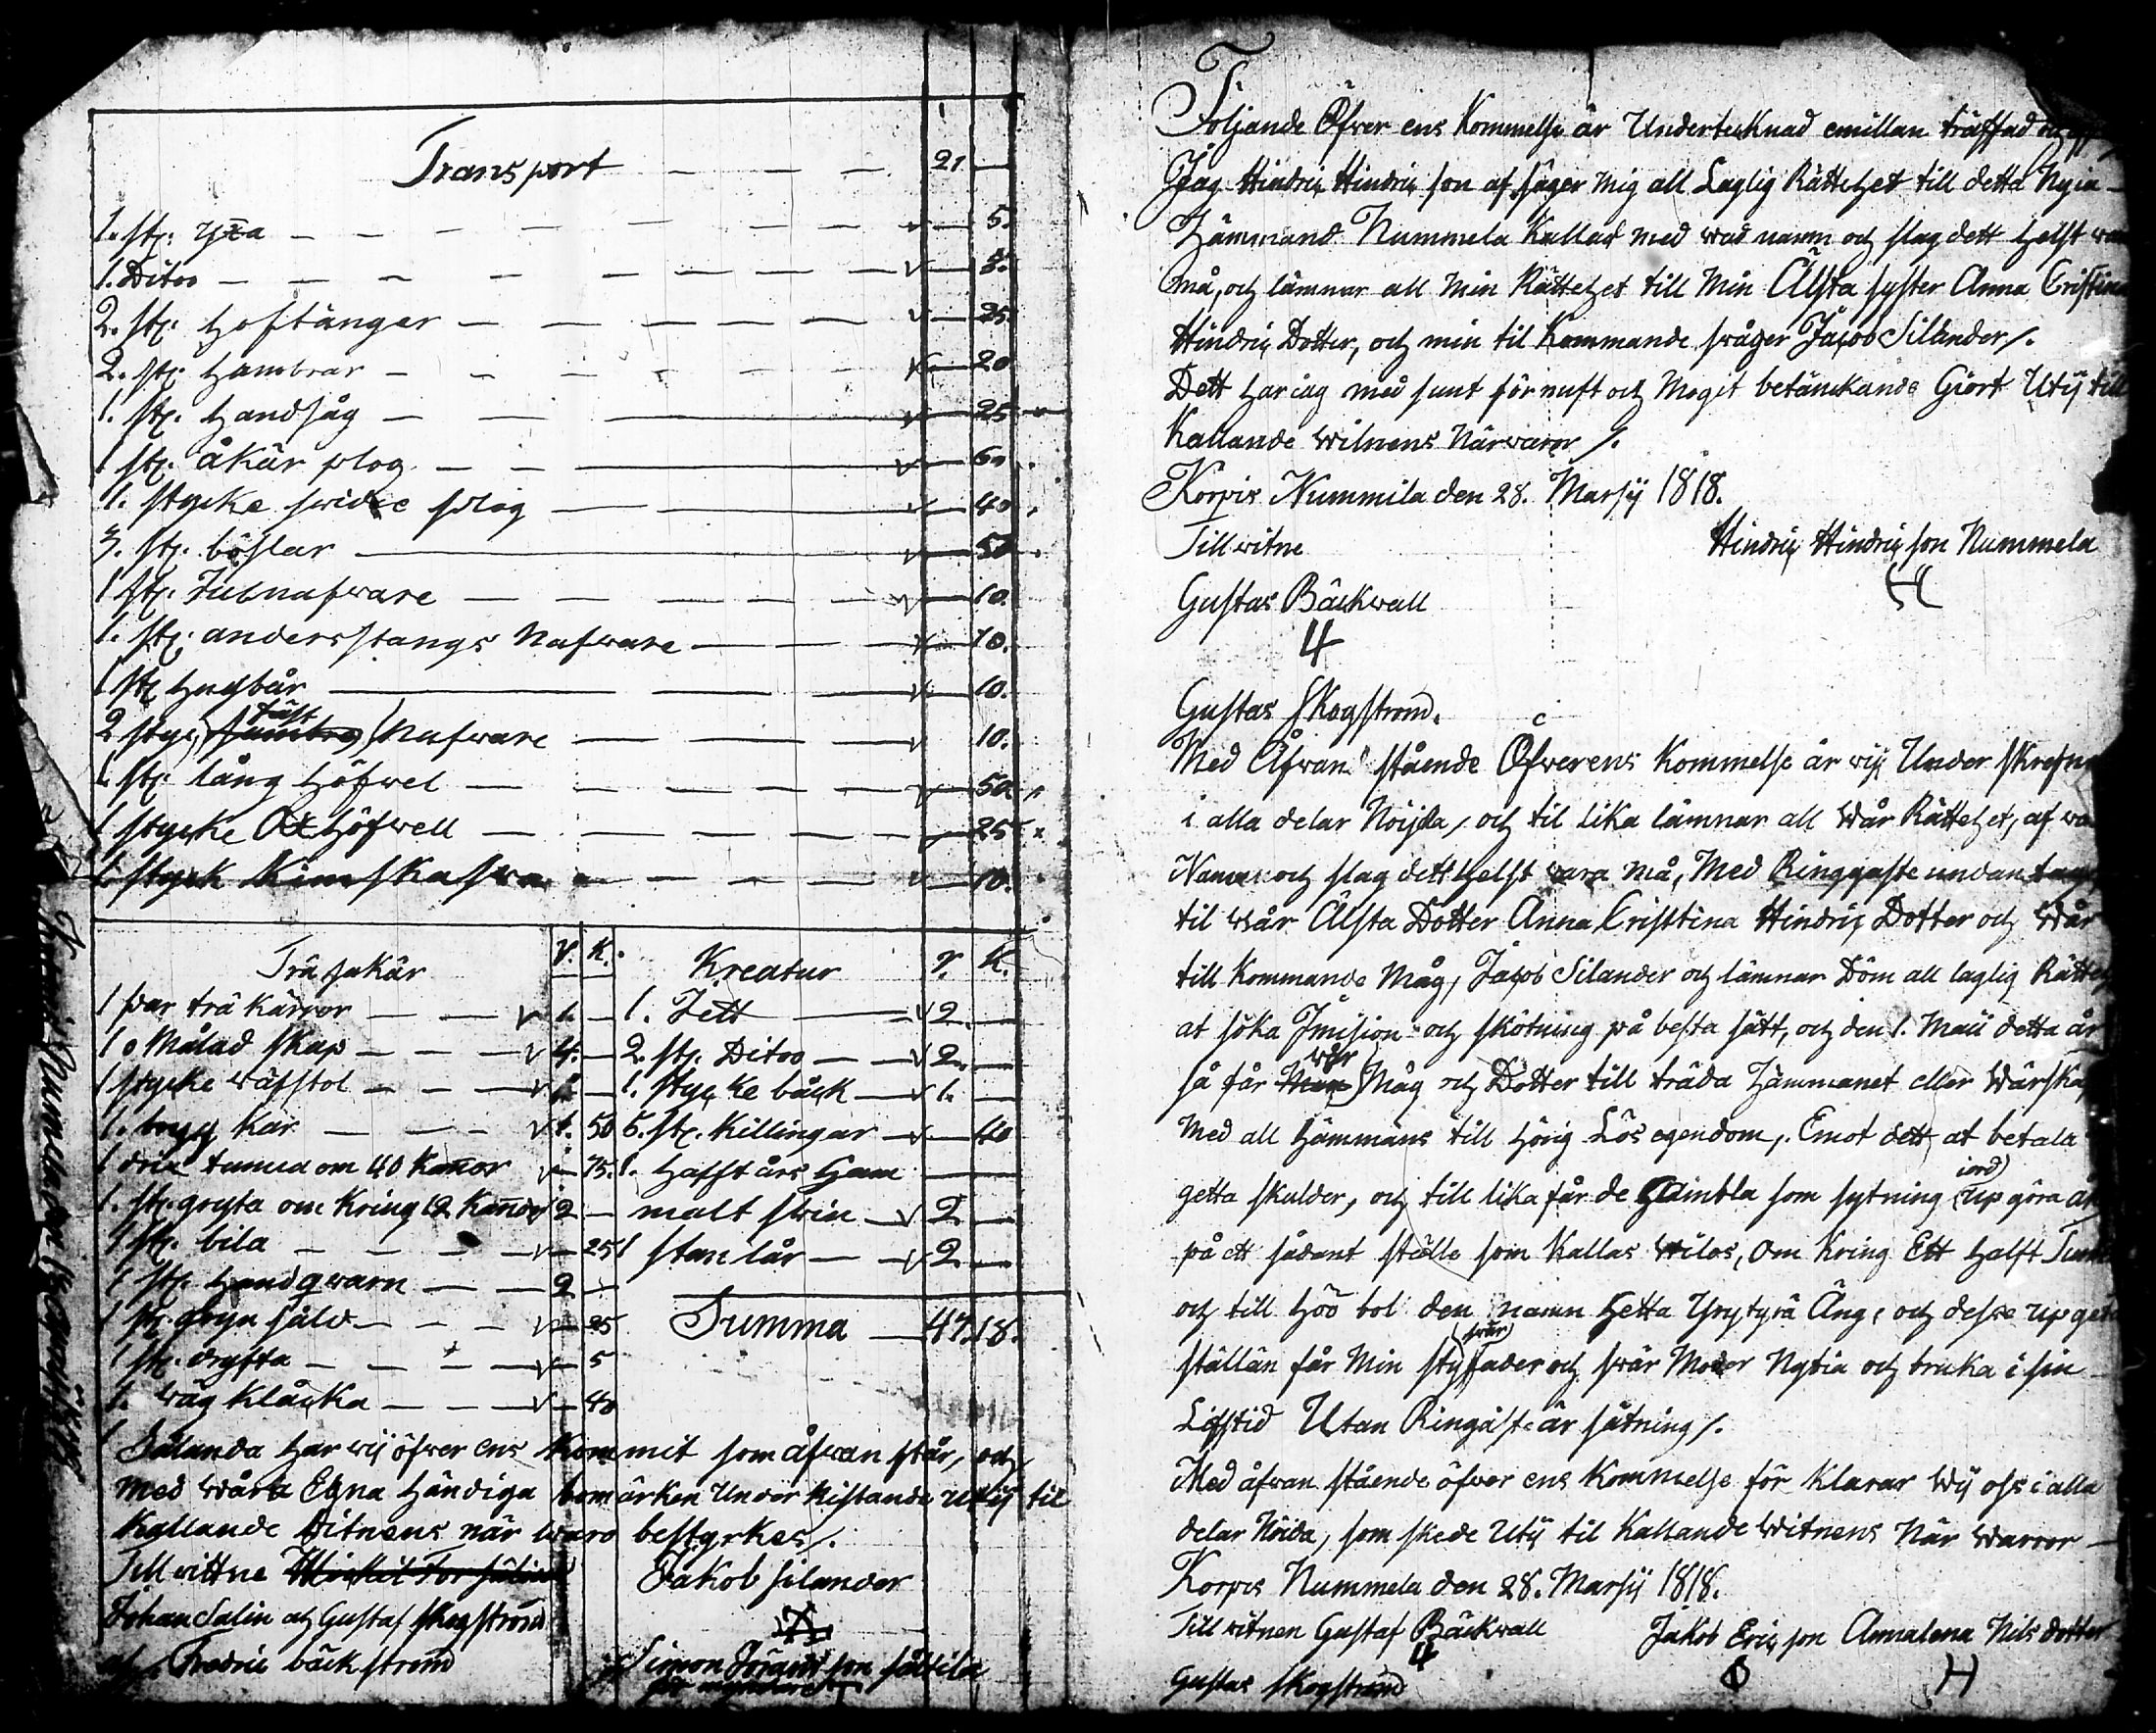 Transport — — — 21 —
1. st: yxa — — — — 5.
1. Ditoo — — — —
2. st: hoftänger — — — 25.
2. st: hambrar — — — 20
1. st. handsåg — — — 25
1 st: åkär plog — — — 60.
1. stycke swidie plog — — 40.
3. st: böslar — — 50.
1 st: Julnafware — — — 10.
1. st: andersstangs Nafware — — 10.
1 st: — — — 10.
2 styc: täst Nafware — — — 10.
1 st: lång höfwel — — — 50.
1 stycke Ox höfwell — — — 25
1 styck — — — 10.
Träsakär R. K.
1 par trä kärror — — 1. —
1. Målad skap — — — 4. —
1 stycke wäfstol — — —
1. brygg kar — — — 1. 50
1 drix tunna om 40 kañor — 75.
1. st. gryta om kring 12 kañor 2 —
1 st. bila — — — 25
1 st. handqwarn — — 2 —
1 st. gryn såld — — — 25
1 st. drygta — — — 5
1. wäg klåcka — — — 40
Kreatur R. K.
1. Jett — 2. —
2. st. Ditoo — — 2. —
1. stycke båck — 1. —
5. st. Killingar — — 40
1. halft års Ham
malt swin — 2 —
1 stan lår — — 2. —
Summa — 47. 18.
Sålunda har wij öfwer ens Kommit som åfwan står, och
med wåra Egna händiga bomärken Under Ristande utij til
kallande witnens när waro bestyrkes /.
Till wittne
Johan Salin och Gustaf Skogström
af Fredric bäckström
Jakob Silander
Simon son
Följande Öfwer ens Kommelse är Undertecknad emillan träffad
Jag Hindric Hindric son af säger mig all Laglig Rättehet till detta Nyia
Hämmand Nummela Kallad med wad namn och slag dett helst wara
må, och lämnar all min Rättehet till Min Älsta syster Anna Cristina
Hindric Dotter, och min til Kommande swåger Jacob Silander /.
Dett har iag med sunt förnuft och Moget betänckande Giort Utij till
Kallande witnens Närwaror /.
Korpis Nummila den 28. Marsij 1818.
Till witne Hindric Hindric son Nummela
H
Gustas Bäckwall
4
Gustas Skogström.
Med Åfwan stående Öfwerens Kommelse är wij Under skrefne
i alla delar Nöijda, och til lika lämnar all Wår Rättehet, af wad
Namn och slag dett helst wara må, Med Ringgaste undan tag
til wår Älsta Dotter Anna Cristtina Hindric Dotter och Wår
till Kommande Måg, Jacob Silander och lämnar Döm all laglig Rättehet
at söka Jmision och skötning på besta sätt, och den 1. Maii detta år
så får wår Måg och Dotter till träda Hämmanet eller Wärskap
Med all Hämmans till hörig Lös egendom /. Emot dett at betala
getta skulder, och till lika får de Gambla som sytning iord up göra år
på ett sådant ställe som Kallas Wilos, om Kring Ett halft Tunn
och till höö bol den namn Hetta Yrytyrä Äng, och desse up getne
ställän får Min styf swär fader och swär Moder Nytia och bruka i sin
Lifstid Utan Ringaste är sätning /.
Med åfwan stående öfwer ens Kommelse för klarar Wij oss i alla
delar Nöida, som skede Utij til Kallande Witnens När Warror —
Korpis Nummela den 28. Marsij 1818.
Till witnen Gustaf Bäckwall Jakob Eric son Annalena Nils dotter
4 H
Gustas Skogström